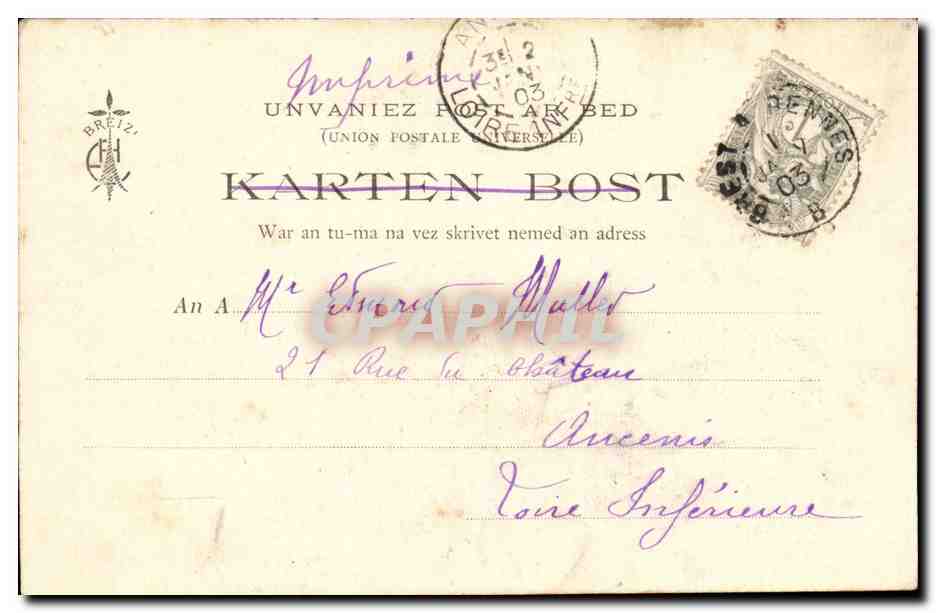 Imprimé
UNVANIEZ POST AR BED
(UNION POSTALE UNIVERSELLE)
BREIZ
KARTEN BOST
War an tu-ma na vez skrivet nemed an adress
An A Mr Edmond Muller
21 Rue du Château
Ancenis
Loire Inférieure
2
03
LOIRE INFRE
BREST À RENNES
03
B
CPAPHIL